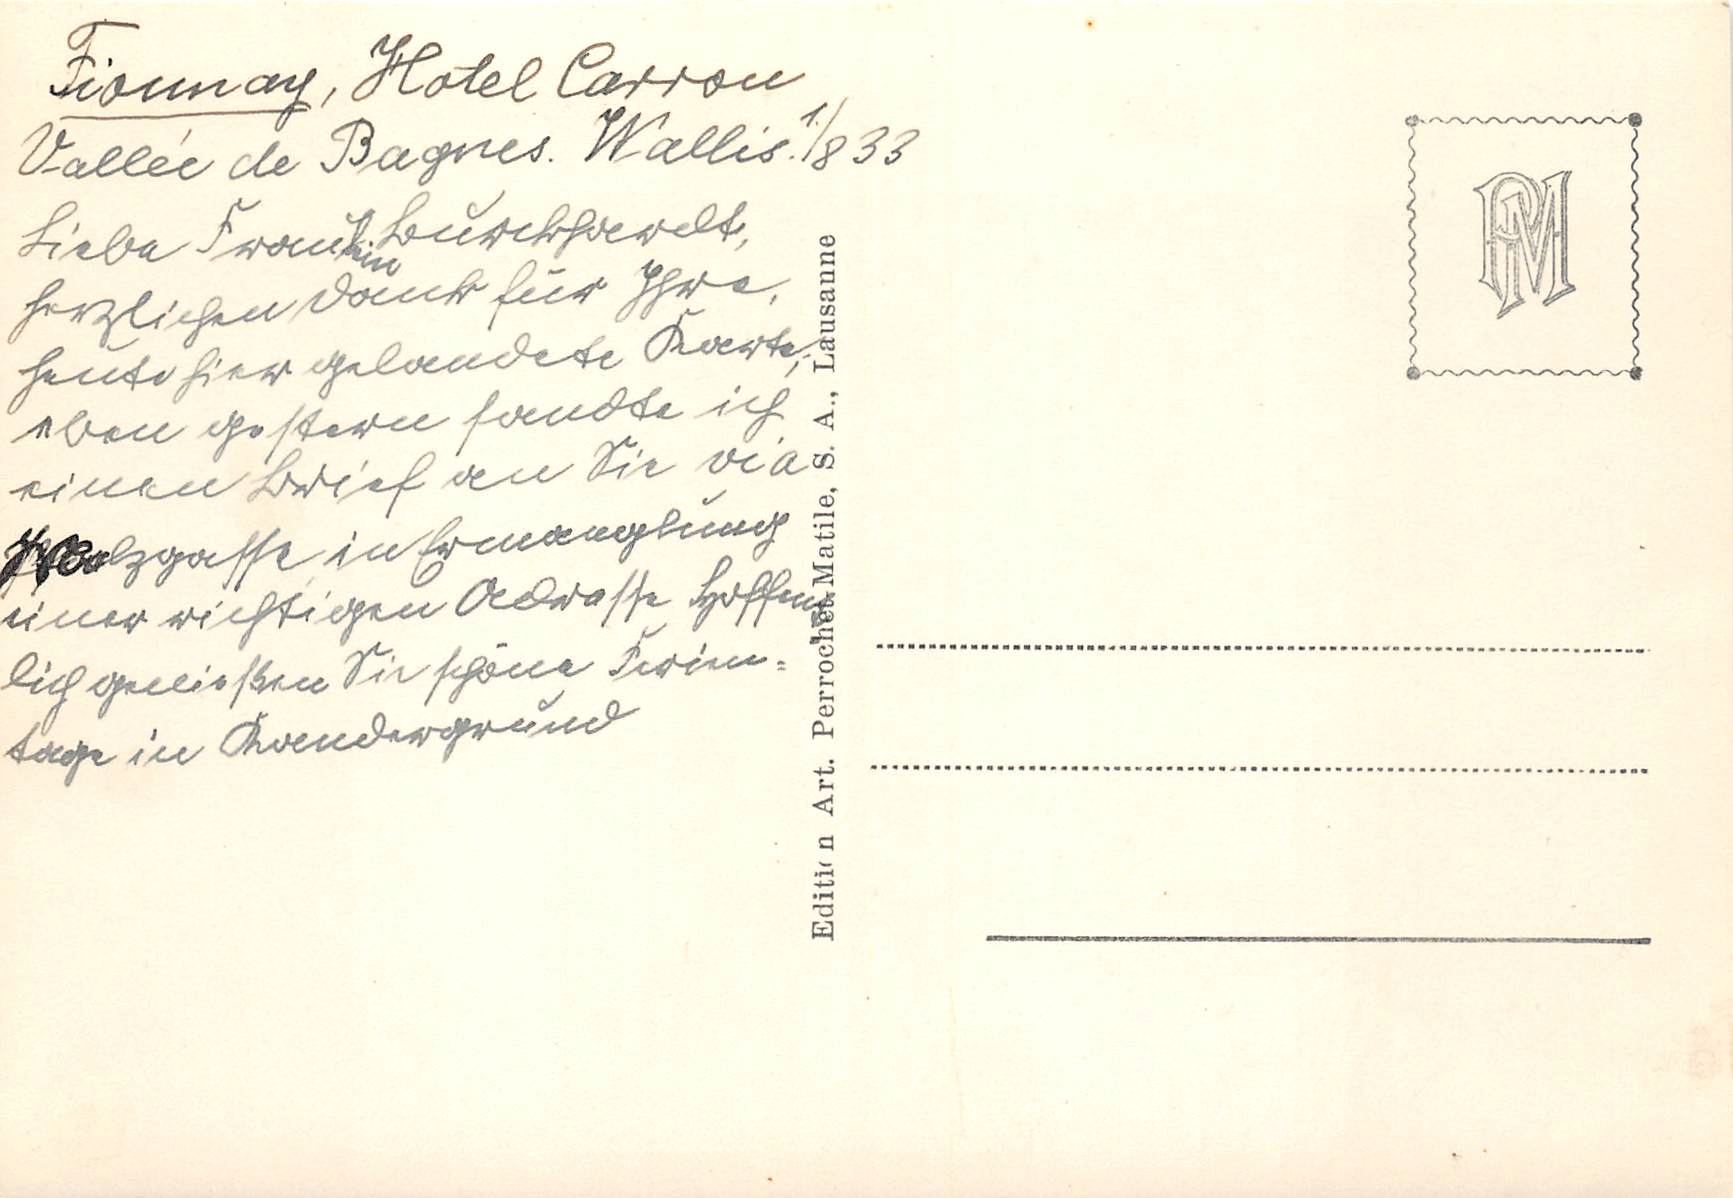 Fionnay, Hotel Carron
Vallée de Bagnes. Wallis. 1./8 33
Liebe Fräulein Burckhardt,
herzlichen Dank für Ihre,
heute hier gelandete Karte,
eben gestern sandte ich
einen Brief an Sie via
in Ermanglung
einer richtigen Adresse Hoffent
lich genießen Sie schöne Ferien=
tage in Kandergrund
Edition Art. Perrochet-Matile, S. A., Lausanne
PM